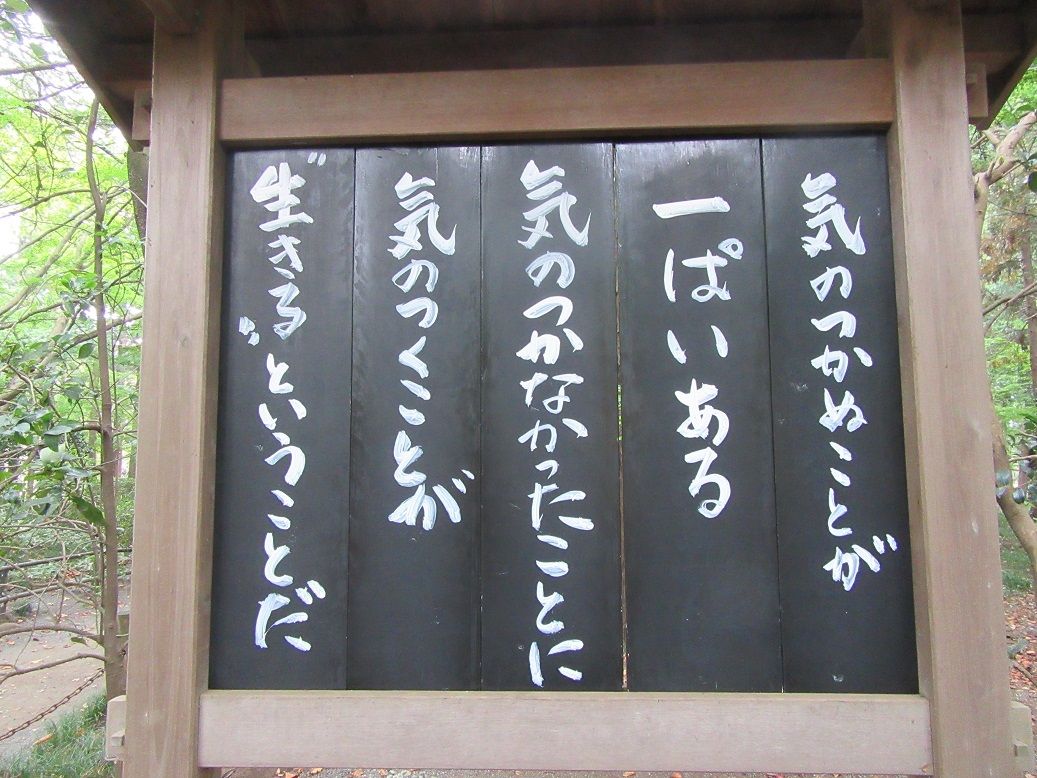 気のつかぬことが
一ぱいある
気のつかなかったことに
気のつくことが
"生きる"ということだ